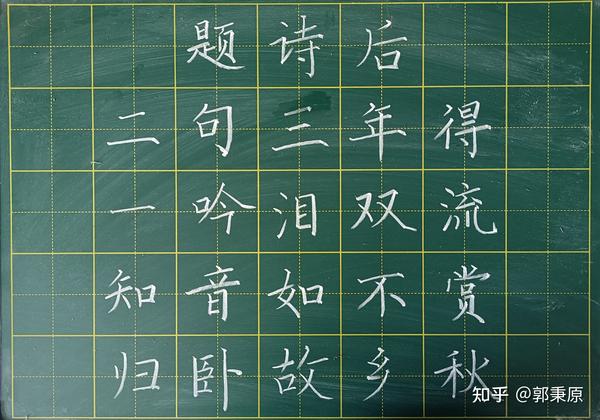 题诗后
二句三年得
一吟泪双流
知音如不赏
归卧故乡秋
知乎 @郭秉原